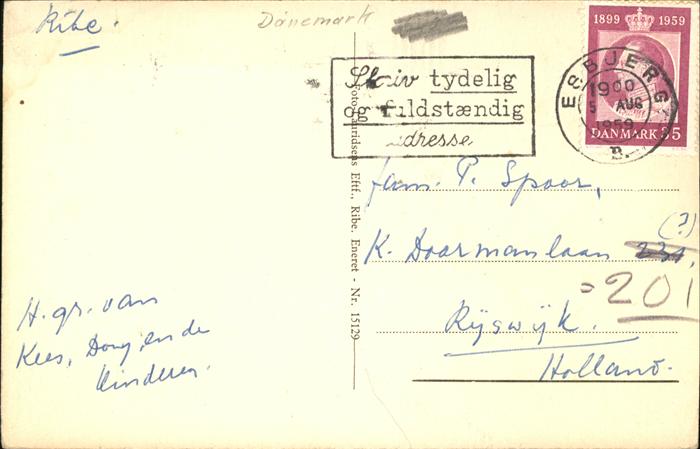 Ribe.
Dänemark
1899 1959
DANMARK 35
ESBJERG
1900
5 AUG
1959
B.
Skriv tydelig
og fuldstændig
adresse
Foto Lauridsens Eftf., Ribe. Eneret - Nr. 15129
Fam. P. Spoor,
K. Doormanlaan 231, (?)
= 201
Rijswijk.
Holland.
H. gr. van
Kees, Dony, en de
kinderen.